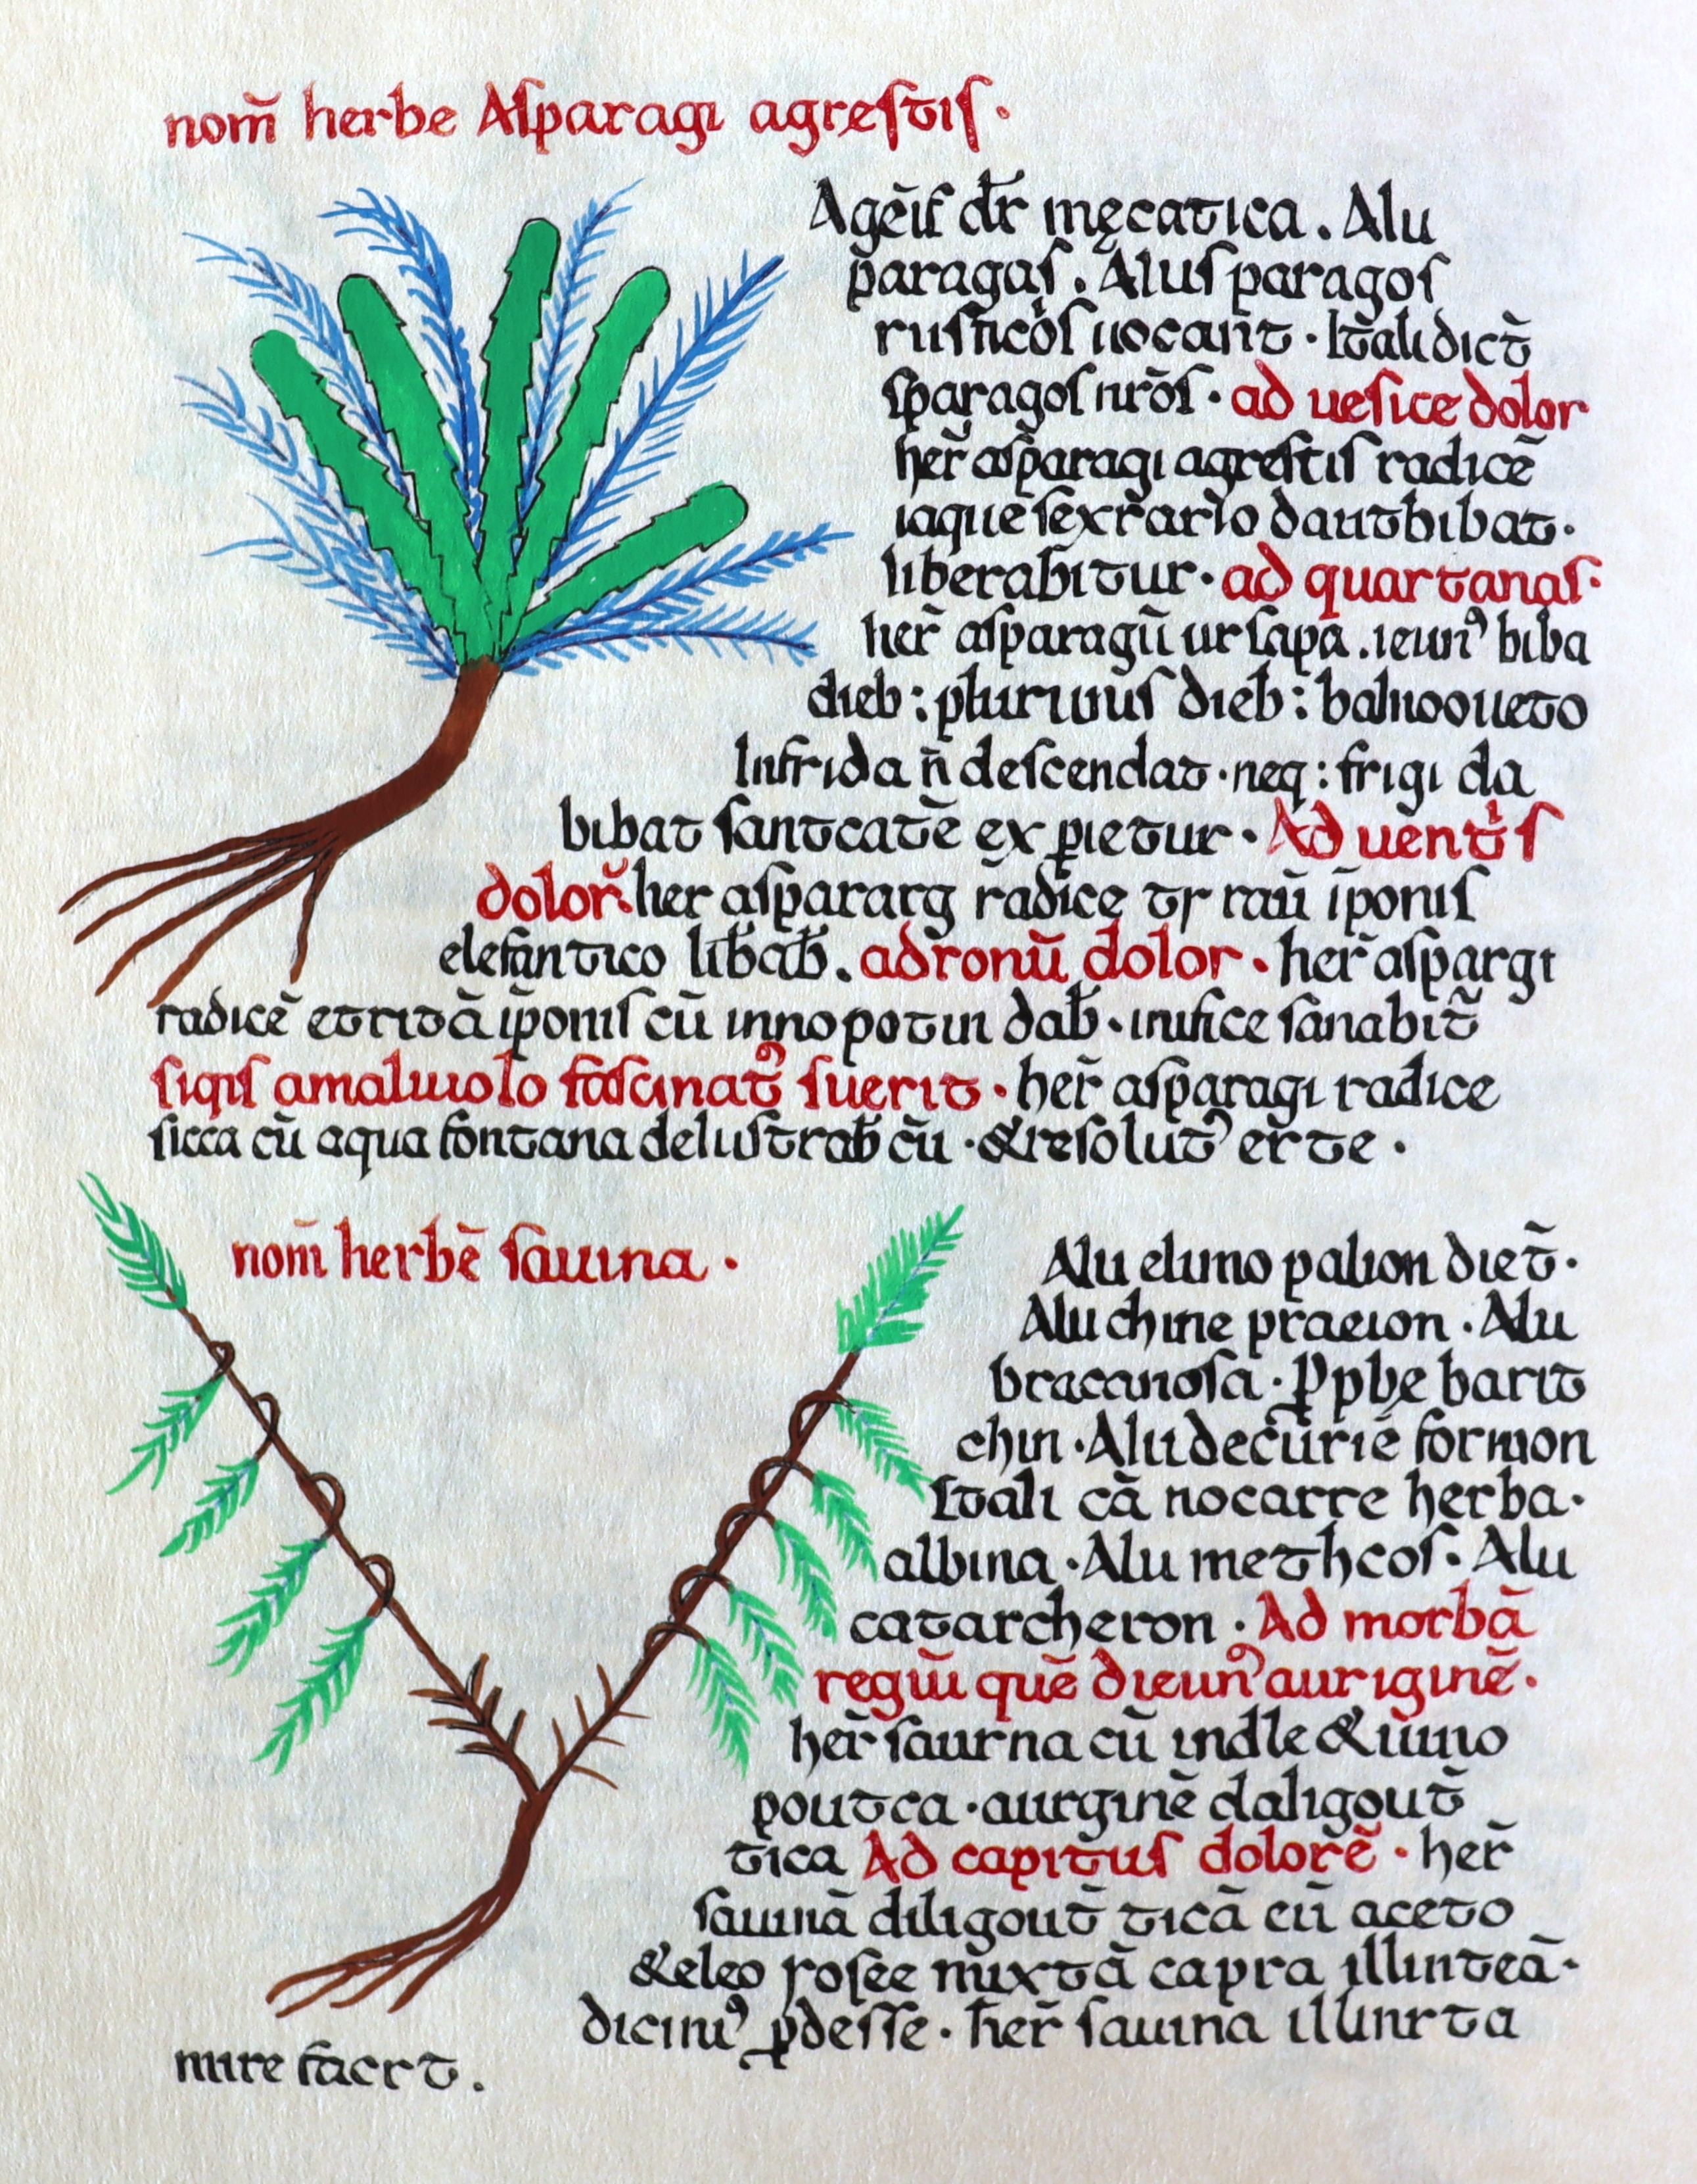 nom̄ herbe Aſparagi agreſtiſ.
Agēiſ dr̄ męcatica. Alu
paragaſ. Aluſ paragoſ
ruſticoſ uocant̄. Itali dict̄
ſparagoſ nr̄oſ. ad ueſice dolor
her̄ aſparagi agreſtiſ radicē
bibat.
liberabitur. ad quartanaſ.
her̄ aſparagū ur ſapa. ieiun⁹ biba
dieb: plurimuſ dieb:
Infrida n̄ deſcendat. neq: frigi da
bibat ex pietur. Ad uentiſ
dolor̄. her aſpararg radice tr raū īponiſ
elefantico lib̄ab̄. ad ronū dolor. her̄ aſpargi
radicē etritā īponiſ cū inno potui dab̄. inifice ſanabit̄
ſiqiſ amaliuolo faſcinat⁹ fuerit. her̄ aſparagi radice
ſicca cū aqua fontana deluſtrab̄ cū. &reſolut⁹ er̄ te.
nom̄ herbē ſauina.
Alu elimo palion diet̄.
Alu chine praeion. Alu
bracanoſa. Ppbę barit
chin. Alu decurie formon
Itali cā nocarre herba.
albina. Alu methcoſ. Alu
catarcheron. Ad morbā
regiū quē dieun⁹ auriginē.
her̄ ſaurna cū indle &uino
poutca. aurginē daligout̄
tica Ad capituſ dolorē. her̄
ſauinā diligout̄ ticā cū aceto
&eleo roſee mixtā capra illinteā.
dicini⁹ pdeſſe. her̄ ſauina illinrta
mire facrt.